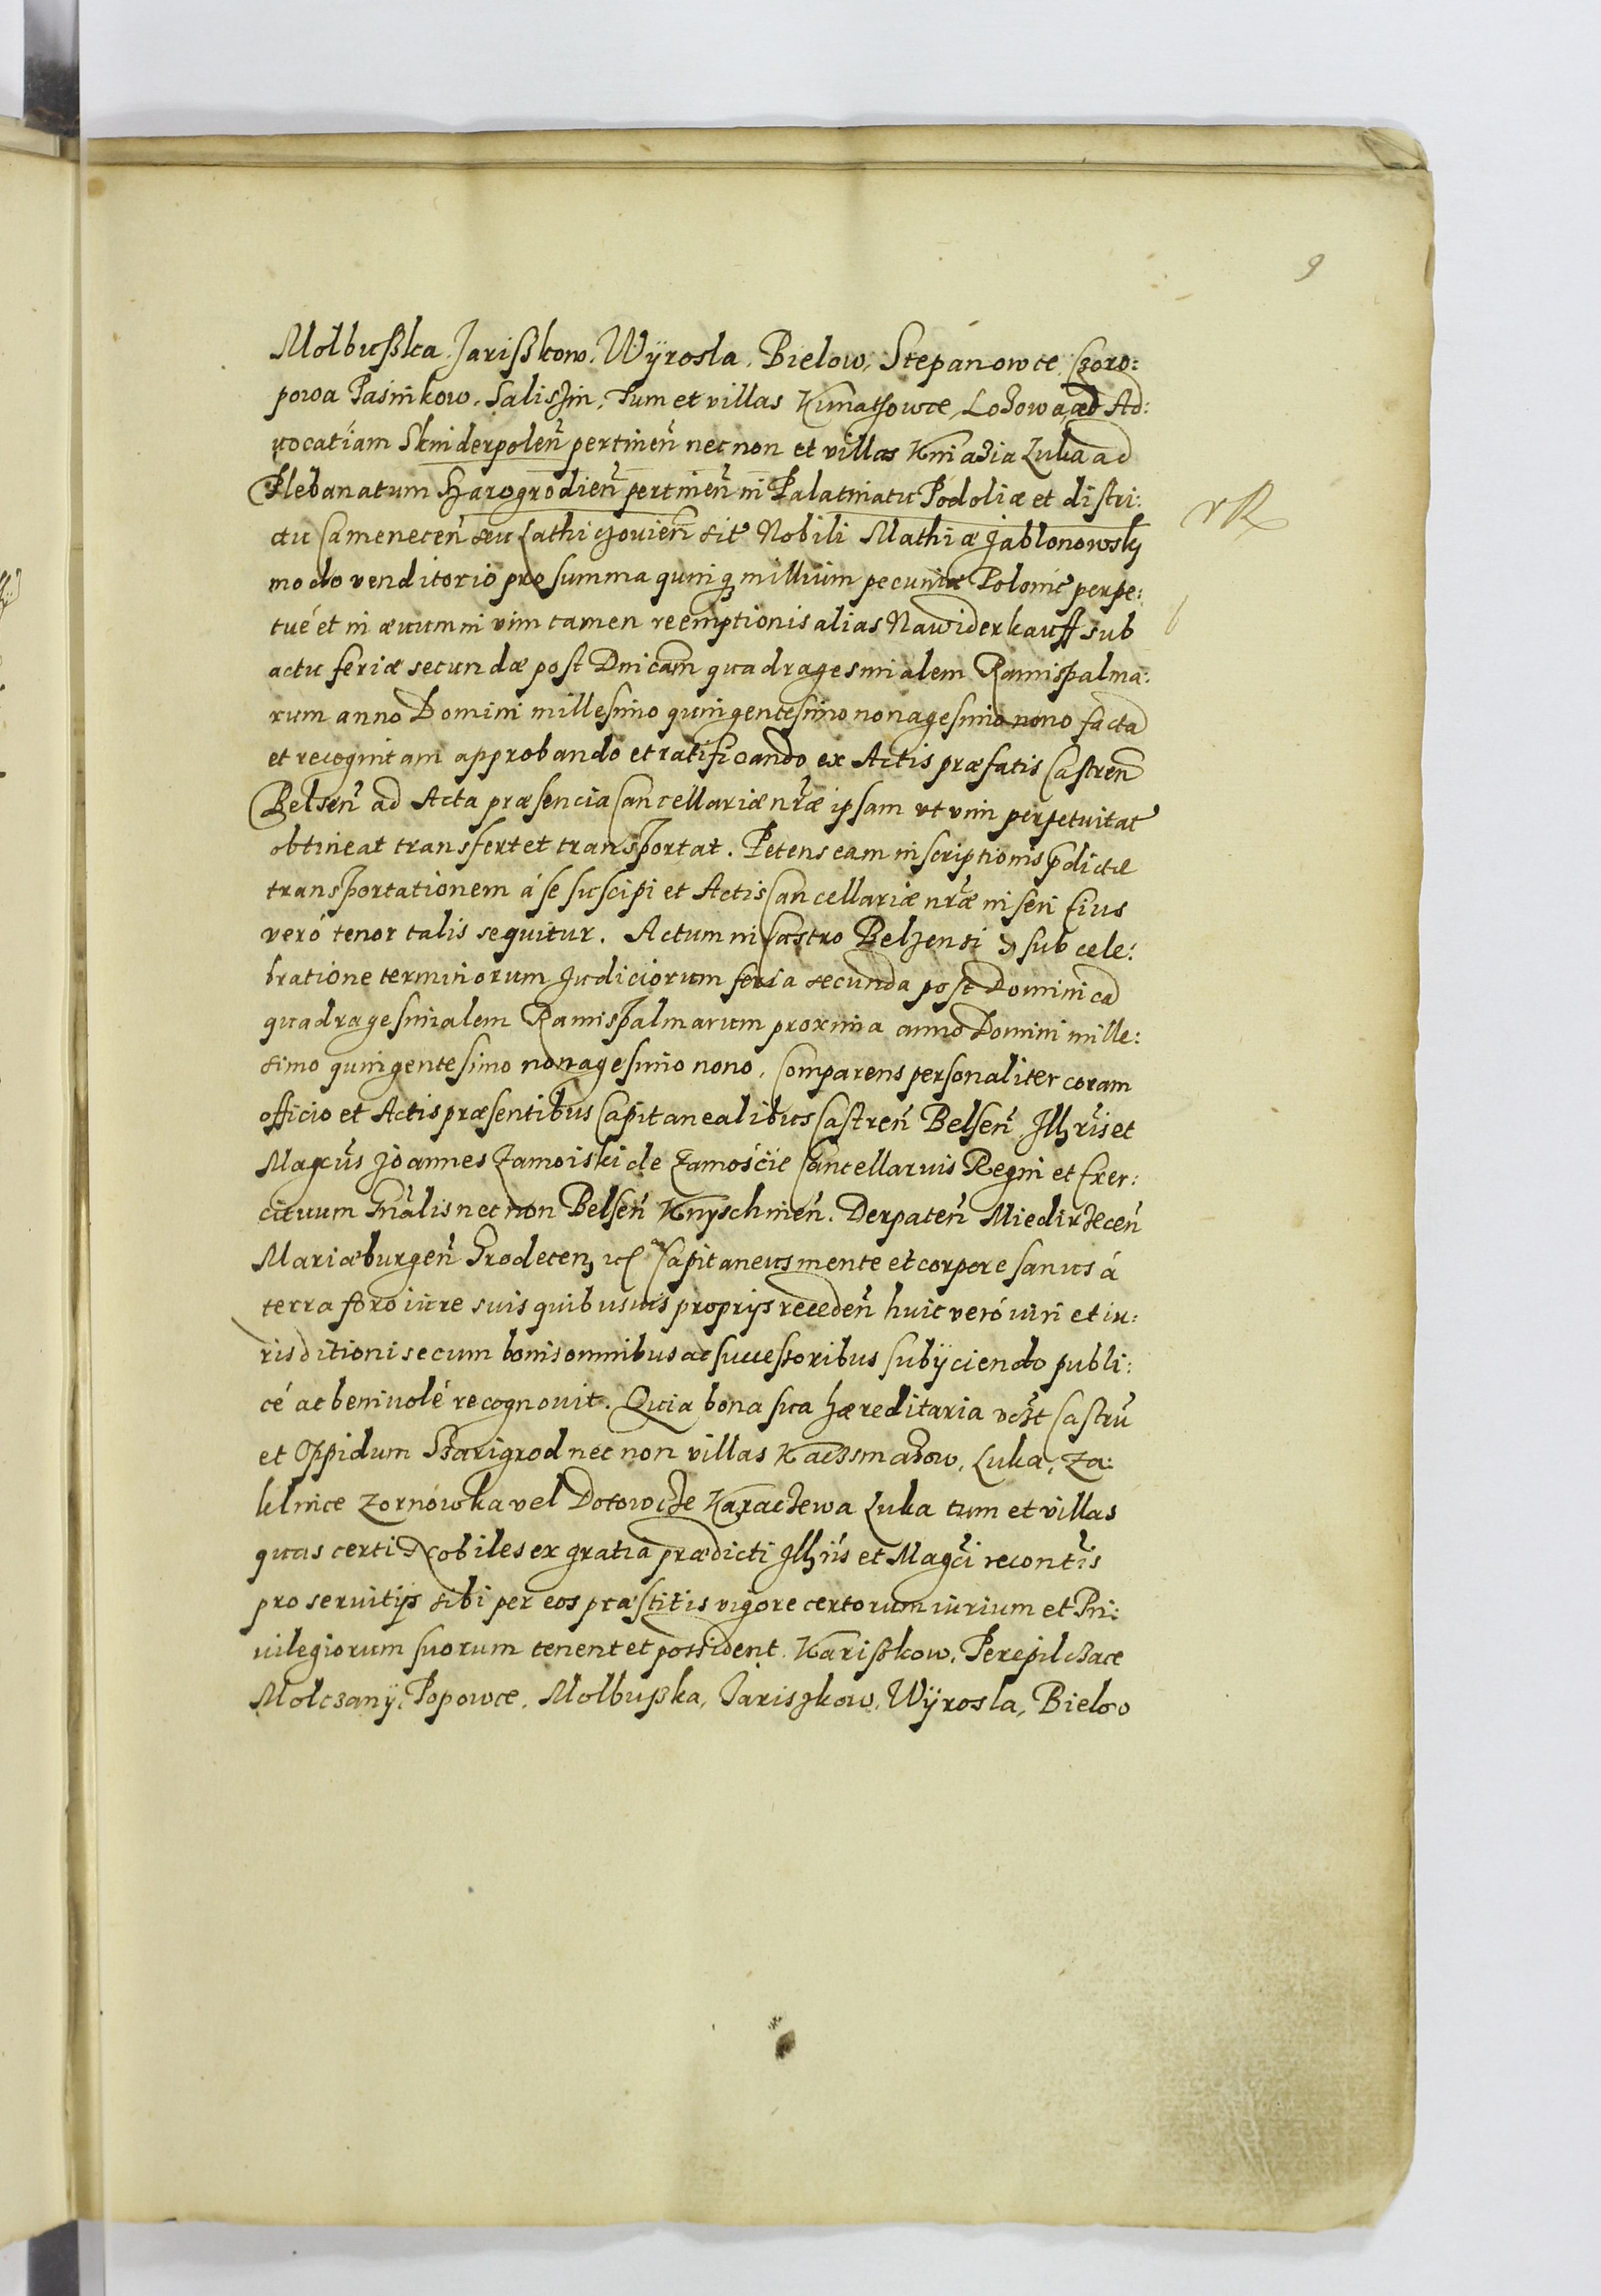 9
Molbußka, Jarißkow, Wÿrosla, Bielow, Stepanowce, Czoro:
powa Pasinkow, Saliszin, Tum et villas Kunatkowce, Lozowa, ad Ad:
uocatiam Skniderpoleñ pertineñ nec non et villas Kniazia Luka ad
Plebanatum Szarogrodieñ pertineñ in Palatinatu Podoliæ et distri:
ctu Cameneceñ seu Lathiczouieñ sit͠ Nobili Mathiæ Jablonowsky
modo venditorio pro summa quinq; millium pecuniæ Polonic͠ perpe:
tué et in æuum in vim tamen reemptionis alias Nawiderkauff sub
actu feriæ secundæ post Dnicam quadragesimalem Ramispalma:
rum anno Domini millesimo quingentesimo nonagesimo nono factā
et recognitam approbando et ratificando ex Actis præfatis Castreñ
Belseñ ad Acta præsencia Cancellariæ nr̃æ ipsam vt vim perpetuitat͠
obtineat transfert et transportat. Petens eam inscriptionis p̄dictæ
transportationem á se suscipi et Actis Cancellariæ nr̃æ inseri Eius
veró tenor talis sequitur. Actum in Castro Belzensi sub cele:
bratione terminorum Judiciorum feria secunda post Dominicā
quadragesimalem Ramispalmarum proxima anno Domini mille:
simo quingentesimo nonagesimo nono. Comparens personaliter coram
officio et Actis præsentibus Capitanealibus Castreñ Belseñ Illr̃is et
Magcũs Joannes Zamoiski de Zamoście Cancellarius Regni et Exer:
cituum Gñalis nec non Belseñ Knyschineñ. Derpateñ Miedirzeceñ
Mariæburgeñ Grodecen, Capitaneus mente et corpore sanus á
terra foro iure suis quibusuis proprijs recedeñ huic veró iuri et iu:
risditioni se cum bonis omnibus ac successoribus subÿciendo publi:
cé ac beniuolé recognouit. Quia bona sua hæreditaria vczt Castrū
et Oppidum Szarigrod nec non villas Kaczmazow, Luka, Za:
klnice Zornówka vel Dotowcze Karaczewa Luka tum et villas
quas certi Nobiles ex gratia prædicti Illr̃is et Magci recontis
pro seruitijs sibi per eos præstitis vigore certorum iurium et Pri:
uilegiorum suorum tenent et possident. Karißkow, Perepilczace
Molczanÿ, Popowce, Molbußka, Jariszkow, Wÿrosla, Bielow